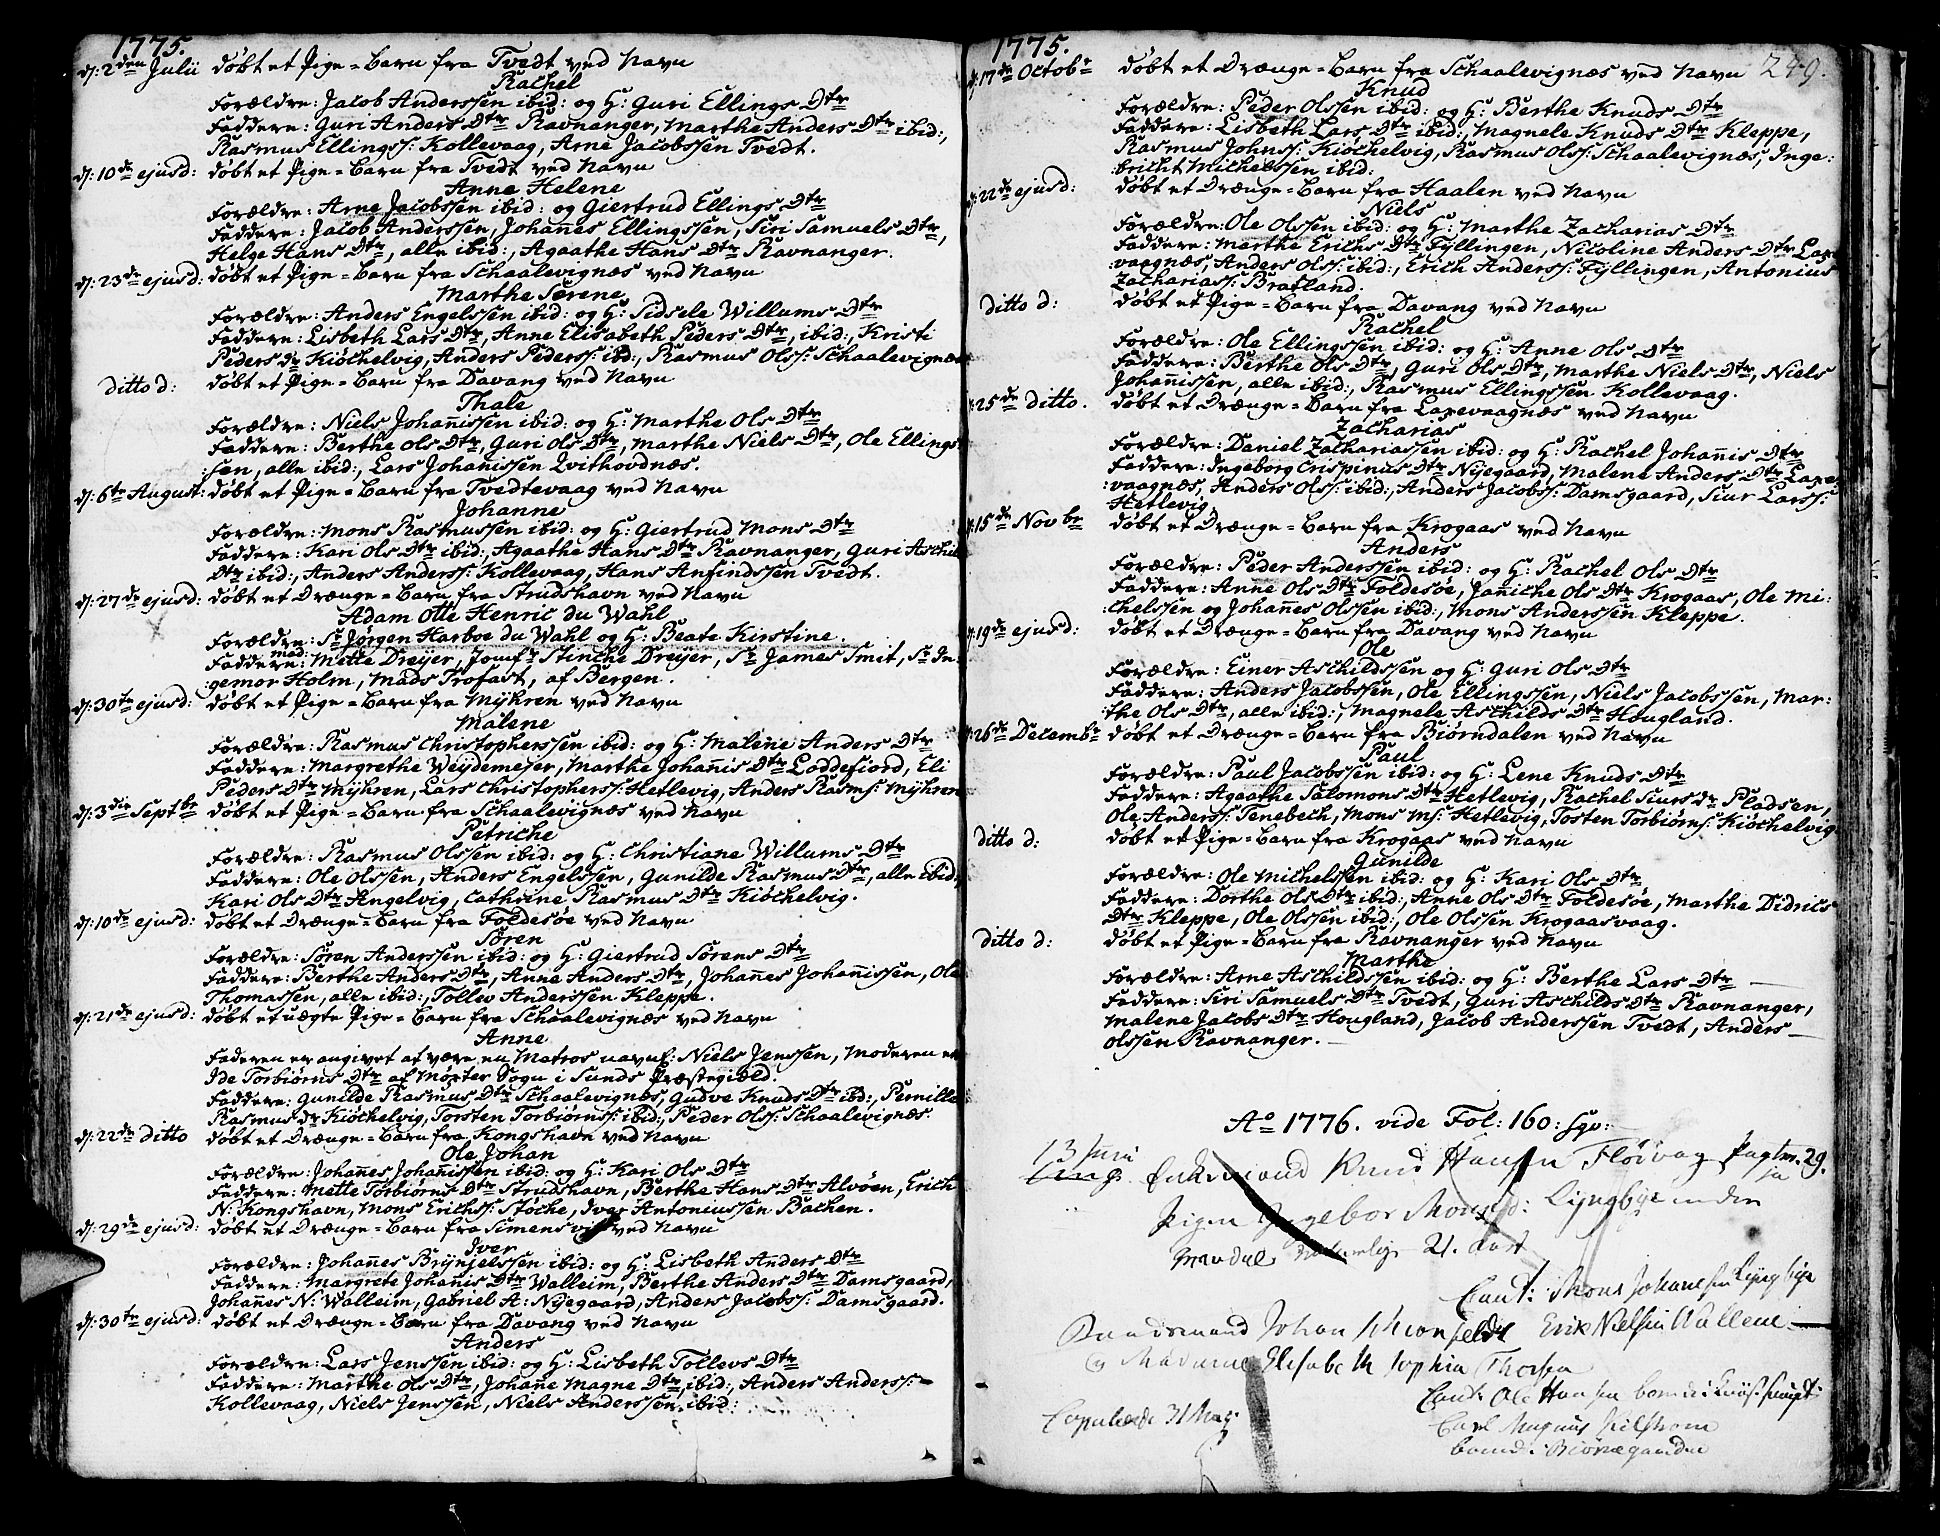 1775.
d: 2den Julii døbt et Pige=Barn fra Tvedt ved Navn
Rachel
Forældre: Jacob Anderssen ibid: og H: Guri Ellings Dtr
Faddere: Guri Anders Dtr Ravnanger, Marthe Anders Dtr ibid:,
Rasmus Ellingss: Kollevaag, Arne Jacobssen Tvedt.
d: 10de ejusd: døbt et Pige=Barn fra Tvedt ved Navn
Anne Helene
Forældre: Arne Jacobssen ibid: og Giertrud Ellings Dtr
Faddere: Jacob Anderssen, Johannes Ellingssen, Siri Samuels Dtr,
Helge Hans Dtr, alle ibid:, Agaathe Hans Dtr Ravnanger.
d: 23de ejusd: døbt et Pige=Barn fra Schaalevignæs ved Navn
Marthe Serene
Forældre: Anders Engelssen ibid: og H: Sidsele Willums Dtr
Faddere: Lisbeth Lars Dtr, Anne Elisabeth Peders Dtr, ibid:, Kristi
Peders Dr Kiöchelvig, Anders Pederss: ibd:, Rasmus Olss: Schaalevignæs
ditto d: døbt et Pige=Barn fra Davang ved Navn
Thale
Forældre: Niels Johannissen ibid: og H: Marthe Ols Dtr
Faddere: Berthe Ols Dtr, Guri Ols Dtr, Marthe Niels Dtr, Ole Ellings
:sen, alle ibid:, Lars Johanissen Qvithovdnæs.
d: 6te August: døbt et Pige=Barn fra Tvedtevaag ved Navn
Johanne
Forældre: Mons Rasmussen ibid: og H: Giertrud Mons Dtr
Faddere: Kari Ols Dtr ibid:, Agaathe Hans Dtr Ravnanger, Guri Aschil
Dtr ibid:, Anders Anderss: Kollevaag, Hans Anfindssen Tvedt.
d: 27de ejusd: døbt et Drænge=Barn fra Strudshavn ved Navn
Adam Otte Henric du Wahl
Forældre: Sr Jørgen Harboe du Wahl og H: Beate Kirstine.
Faddere: Mad: Mette Dreÿer, Jomfr Stinche Dreÿer, Sr James Smit, Sr In:
:gemor Holm, Mads Trofast, af Bergen.
d: 30te ejusd: døbt et Pige=Barn fra Mÿhren ved Navn
Malene
Forældre: Rasmus Christopherssen ibid: og H: Malene Anders Dtr
Faddere: Margrethe Weÿdemeser, Marthe Johannis Dtr Loddefiord, Eli
Peders Dtr Mÿhren, Lars Christopherss: Hetlevig, Anders Rasms: Mÿhren
d: 3die Septbr døbt et Pige=Barn fra Schaalevignæs ved Navn
Petriche
Forældre: Rasmus Olssen ibid: og H: Christiane Willums Dtr
Faddere: Ole Olssen, Anders Engelssen, Gunilde Rasmus Dtr, alle ibid:,
Kari Ols Dtr Angelvig, Cathrine Rasmus Dtr Kiöchelvig.
d: 10de ejusd: døbt et Drænge=Barn fra Foldesøe ved Navn
Sören
Forældre: Sören Anderssen ibid: og H: Giertrud Sörens Dtr
Faddere: Berthe Anders Dtr, Anne Anders Dtr, Johannes Johannissen, Ole
Thomassen, alle ibid:, Tollev Anderssen Kleppe.
d: 21de ejusd: døbt et uægte Pige=Barn fra Schaalevignæs ved Navn
Anne
Faderen er angivet af være en Matros navnl: Niels Jenssen, Moderen er
Ide Torbiörns Dtr af Møster Sogn i Sunds Præstegield.
Faddere: Gunilde Rasmus Dtr Schaalevignæs, Gudve Knuds Dtr ibd:, Pernille
Rasmus Dr Kiöchelvig, Torsten Torbiörnss: ibid:, Peder Olss: Schaalevignæs.
d: 22de ditto døbt et Drænge=Barn fra Kongshavn ved Navn
Ole Johan
Forældre: Johannes Johannissen ibid: og H: Kari Ols Dtr
Faddere: Mette Torbiörns Dtr Strudshavn, Berthe Hans Dtr Alvöen, Erich
N: Kongshavn, Mons Erichss: Støche, Iver Antoniussen Bachen.
d: 29de ejusd: døbt et Drænge=Barn fra Simensvig ved Navn
Iver
Forældre: Johannes Brÿnjelssen ibid: og H: Lisbeth Anders Dtr
Faddere: Margrete Johanis Dtr Walleim, Berthe Anders Dtr Damsgaard,
Johannes N: Walleim, Gabriel A: Nÿegaard, Anders Jacobss: Damsgaard.
d: 30te ejusd: døbt et Drænge=Barn fra Davang ved Navn
Anders
Forældre: Lars Jenssen ibid: og H: Lisbeth Tollevs Dtr
Faddere: Marthe Ols Dtr, Johanne Magne Dtr, ibid:, Anders Anderss:
Kollevaag, Niels Jenssen, Niels Anderssen, ibid:
1775.
249.
d: 17de Octobr døbt et Drænge=Barn fra Schaalevignæs ved Navn
Knud
Forældre: Peder Olssen ibid: og H: Berthe Knuds Dtr
Faddere: Lisbeth Lars Dtr ibid:, Magnele Knuds Dtr Kleppe,
Rasmus Johnss: Kiöchelvig, Rasmus Olss: Schaalevignæs, Inge:
:bricht Michelssen ibid:
d: 22de ejusd: døbt et Drænge=Barn fra Haalen ved Navn
Niels
Forældre: Ole Olssen ibid: og H: Marthe Zacharias Dtr
Faddere: Marthe Erichs Dtr Fÿllingen, Nicoline Anders Dtr Laxe
:vaagnæs, Anders Olss: ibid:, Erich Anderss: Fÿllingen, Antonius
Zachariass: Bratland.
ditto d: døbt et Pige=Barn fra Davang ved Navn
Rachel
Forældre: Ole Ellingssen ibid: og H: Anne Ols Dtr
Faddere: Berthe Ols Dtr, Guri Ols Dtr, Marthe Niels Dtr, Niels
Johannissen, alle ibid:, Rasmus Ellingssen Kollevaag.
d: 25de ditto. døbt et Drænge=Barn fra Laxevaagnæs ved Navn
Zacharias
Forældre: Daniel Zachariassen ibid: og H: Rachel Johannis Dtr
Faddere: Ingeborg Crispinus Dtr Nÿegaard, Malene Anders Dtr Laxe
:vaagnæs, Anders Olss: ibid:, Anders Jacobss: Damsgaard, Siur Larss:
Hetlevig.
d: 15de Novbr døbt et Drænge=Barn fra Krogaas ved Navn
Anders
Forældre: Peder Anderssen ibid: og H: Rachel Ols Dtr
Faddere: Anne Ols Dtr Foldesöe, Janiche Ols Dtr Krogaas, Ole Mi:
:chelssen og Johannes Olssen ibid:, Mons Anderssen Kleppe.
d: 19de ejusd: døbt et Drænge=Barn fra Davang ved Navn
Ole
Forældre: Einer Aschildssen og H: Guri Ols Dtr
Faddere: Anders Jacobssen, Ole Ellingssen, Niels Jacobssen, Mar:
:the Ols Dtr, alle ibid:, Magnele Aschilds Dtr Hougland.
d: 26de Decembr døbt et Drænge=Barn fra Biörndalen ved Navn
Paul
Forældre: Paul Jacobssen ibid: og H: Lene Knuds Dtr
Faddere: Agaathe Salomons Dtr Hetlevig, Rachel Siurs Dr Pladsen,
Ole Anderss: Tenebech, Mons Ms: Hetlevig, Tosten Torbiörns: Kiöchelvig
ditto d: døbt et Pige=Barn fra Krogaas ved Navn
Gunilde
Forældre: Ole Michelssen ibid: og H: Kari Ols Dtr
Faddere: Dorthe Ols Dtr ibid:, Anne Ols Dtr Foldesöe, Marthe Didrics
Dtr Kleppe, Ole Olssen ibid:, Ole Olssen Krogaasvaag.
ditto d: døbt et Pige=Barn fra Ravnanger ved Navn
Marthe
Forældre: Arne Aschildssen ibid: og H: Berthe Lars Dtr
Faddere: Siri Samuels Dtr Tvedt, Guri Aschilds Dtr Ravnanger,
Malene Jacobs Dtr Hougland, Jacob Anderssen Tvedt, Anders
Olssen Ravnanger.
Ao 1776. vide Fol: 160: sqv:
13 Juni Enkemand Knud Hansen Flöivog 29.
Pigen Ingebor Mons D: Lÿngbÿe
21. Aust
Caut: Mons Johanesen Lÿngbÿe
Erik Nielsen Wallene
Johan
og Madame Elisabeth Sophia Thorsen
Caut: Ole Hansen
Copulerede 31 Maÿ. Carl Magnus